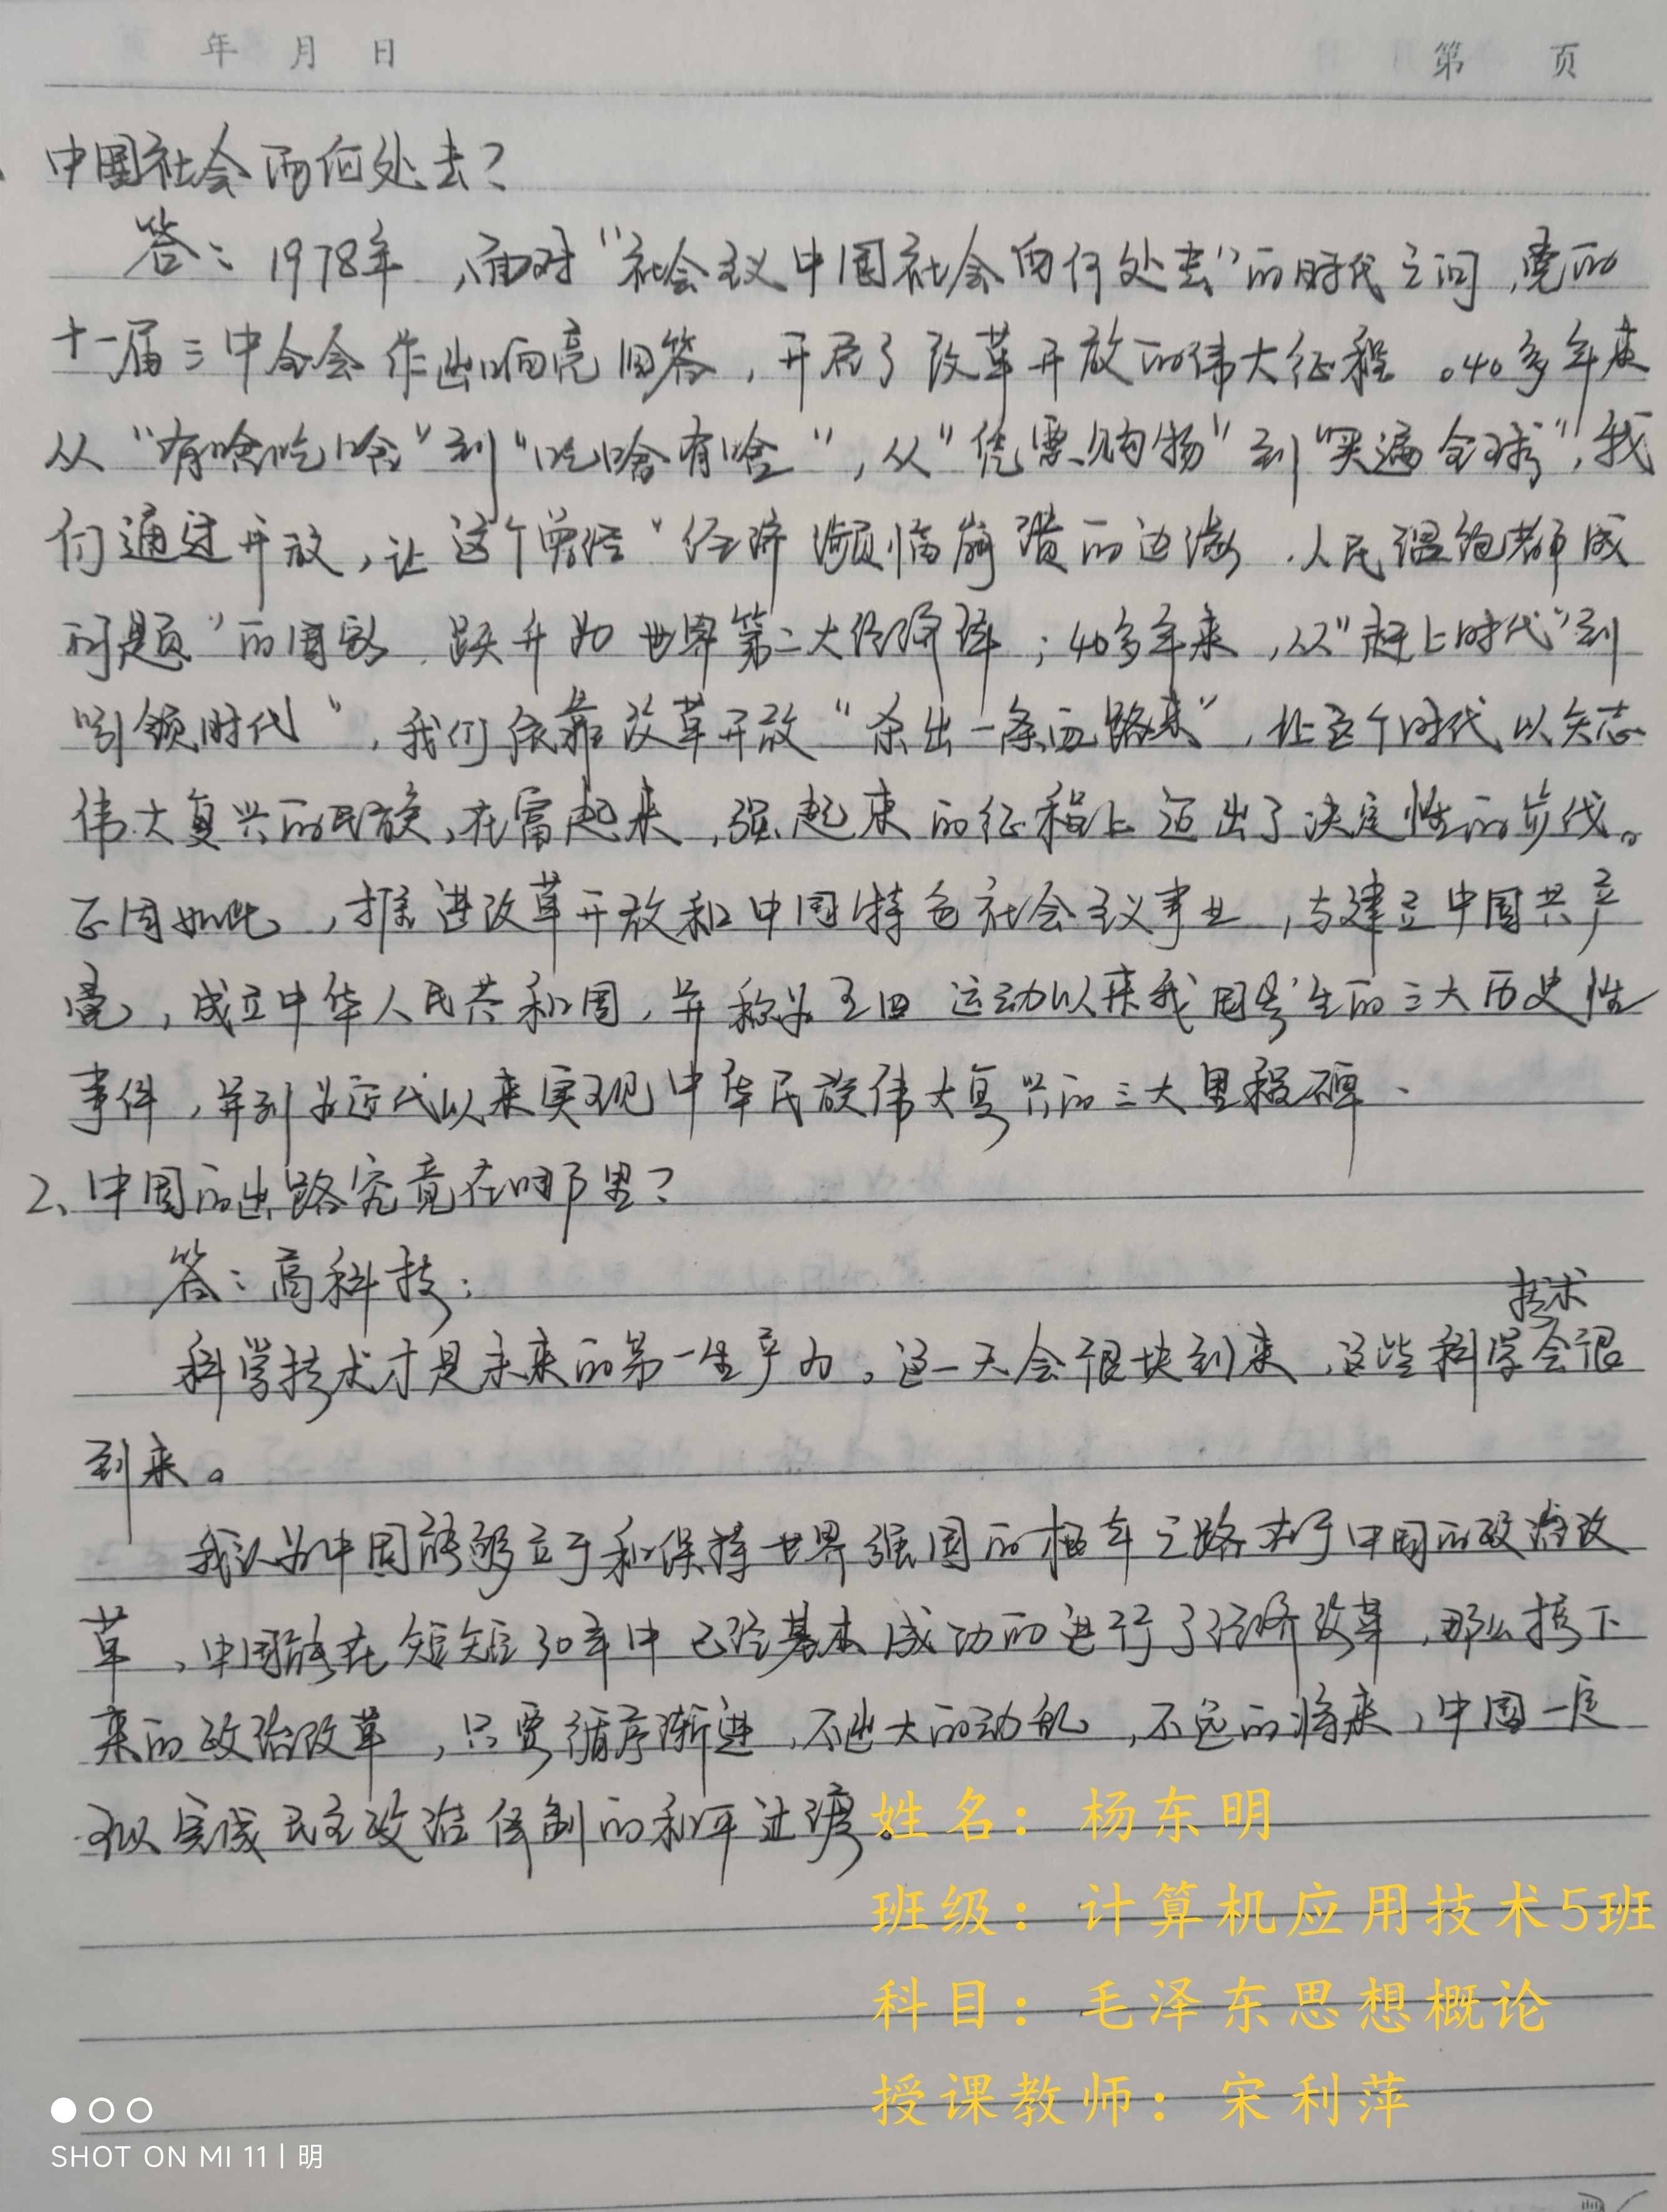 年 月 日 第 页
中国社会向何处去?
答:1978年,面对"社会主义中国社会向何处去"的时代之问,党的
十一届三中全会作出响亮回答,开启了改革开放的伟大征程。40多年来
从"有啥吃啥"到"吃啥有啥",从"凭票购物"到"买遍全球",我
们通过开放,让这个曾经"经济濒临崩溃的边缘.人民温饱都成
问题"的国家.跃升为世界第二大经济体;40多年来,从"赶上时代"到
"引领时代",我们依靠改革开放"杀出一条血路来",让这个时代以矢志
伟大复兴的民族,在富起来,强起来的征程上迈出了决定性的步伐。
正因如此,推进改革开放和中国特色社会主义事业,与建立中国共产
党,成立中华人民共和国,并称为五四运动以来我国发生的三大历史性
事件,并列为近代以来实现中华民族伟大复兴的三大里程碑、
2、中国的出路究竟在哪里?
答:高科技:
技术
科学技术才是未来的第一生产力。这一天会很快到来,这些科学会很
到来。
我认为中国能够立于和保持世界强国的根本之路在于中国的政治改
革,中国能在短短30年中已经基本成功的进行了经济改革,那么接下
来的政治改革,只要循序渐进,不出大的动乱,不远的将来,中国一定
可以完成民主政治体制的和平过渡。
姓名:杨东明
班级:计算机应用技术5班
科目:毛泽东思想概论
授课教师:宋利萍
SHOT ON MI 11 | 明